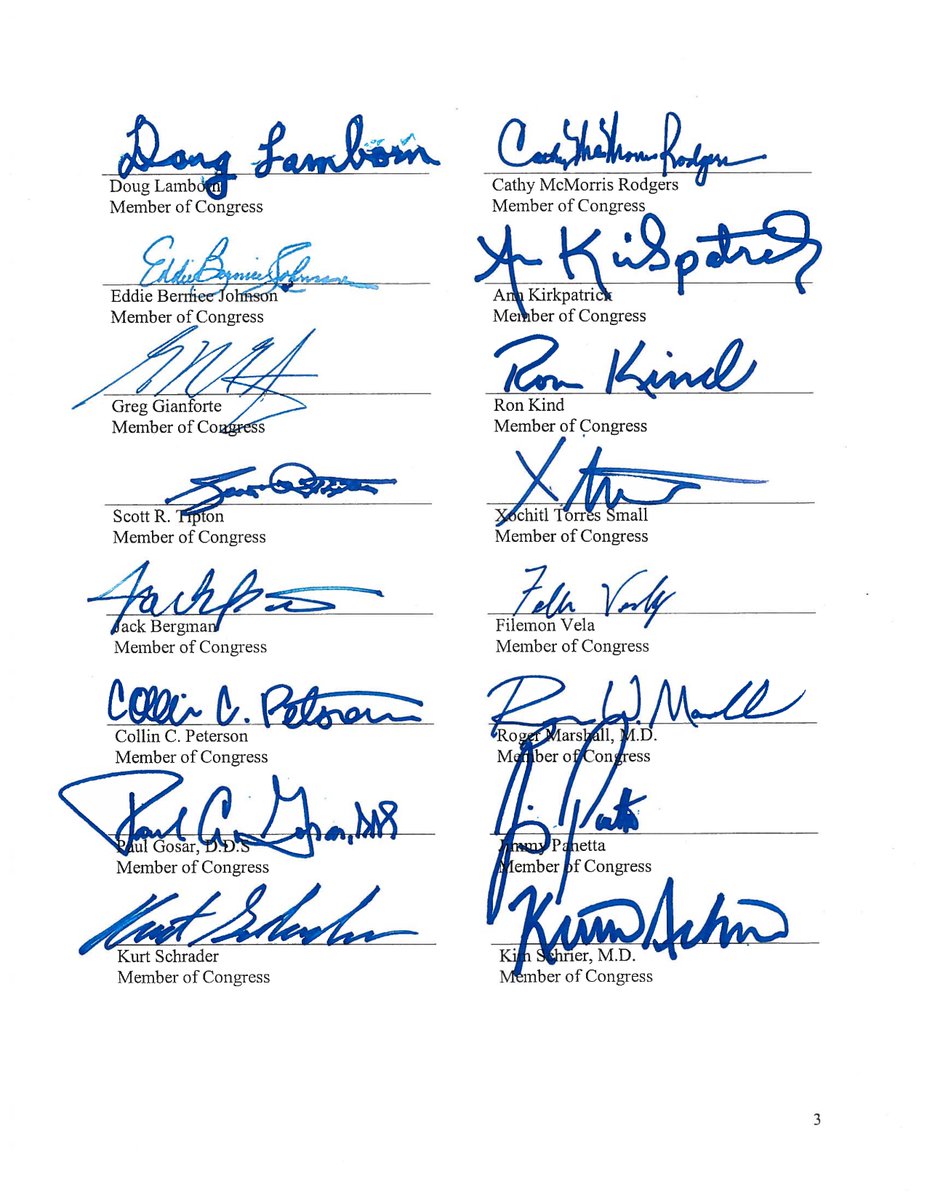 Doug Lamborn
Cathy McMorris Rodgers
Doug Lamborn
Member of Congress
Cathy McMorris Rodgers
Member of Congress
Eddie Bernice Johnson
Ann Kirkpatrick
Eddie Bernice Johnson
Member of Congress
Ann Kirkpatrick
Member of Congress
Ron Kind
Greg Gianforte
Member of Congress
Ron Kind
Member of Congress
Scott R. Tipton
Member of Congress
Xochitl Torres Small
Member of Congress
Jack Bergman
Member of Congress
Filemon Vela
Member of Congress
Collin C. Peterson
Collin C. Peterson
Member of Congress
Roger Marshall, M.D.
Member of Congress
Paul A. Gosar, DDS
Paul Gosar, D.D.S
Member of Congress
Jimmy Panetta
Member of Congress
Kurt Schrader
Kurt Schrader
Member of Congress
Kim Schrier, M.D.
Member of Congress
3